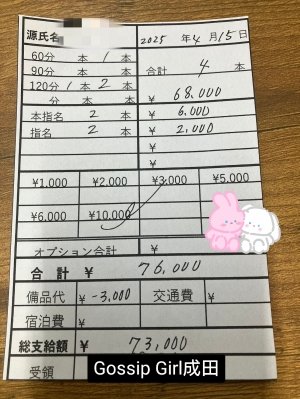 源氏名
2025 年 4 月 15 日
60分 本 1 本
90分 本 本
合計 4 本
120分 1 本 2 本
分 本 本 ¥ 68,000
本指名 2 本 ¥ 6,000
指名 2 本 ¥ 2,000
¥
¥
¥1,000 ¥2,000 ¥3,000 ¥5,000
¥6,000 ¥10,000
オプション合計 ¥
合計 ¥ 76,000
備品代 ¥ -3,000 交通費 ¥
宿泊費 ¥ ¥
総支給額 ¥ 73,000
受領
Gossip Girl成田